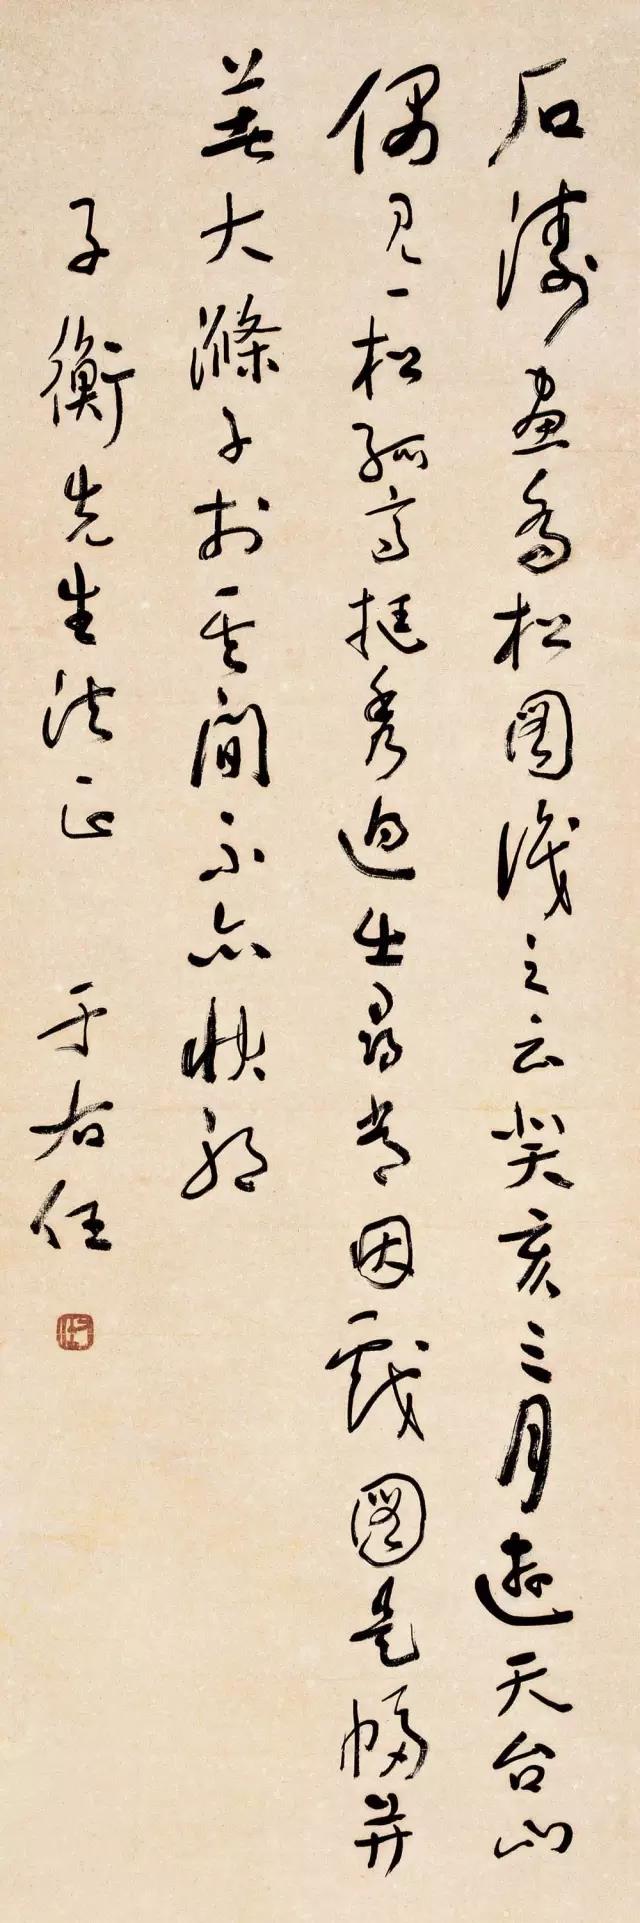 石濤畫喬松圖識之云癸亥三月遊天台山
偶見一松孤高挺秀迥出尋常因戲圖是幅并
著大滌子於其間不亦快耶
子衡先生法正 于右任